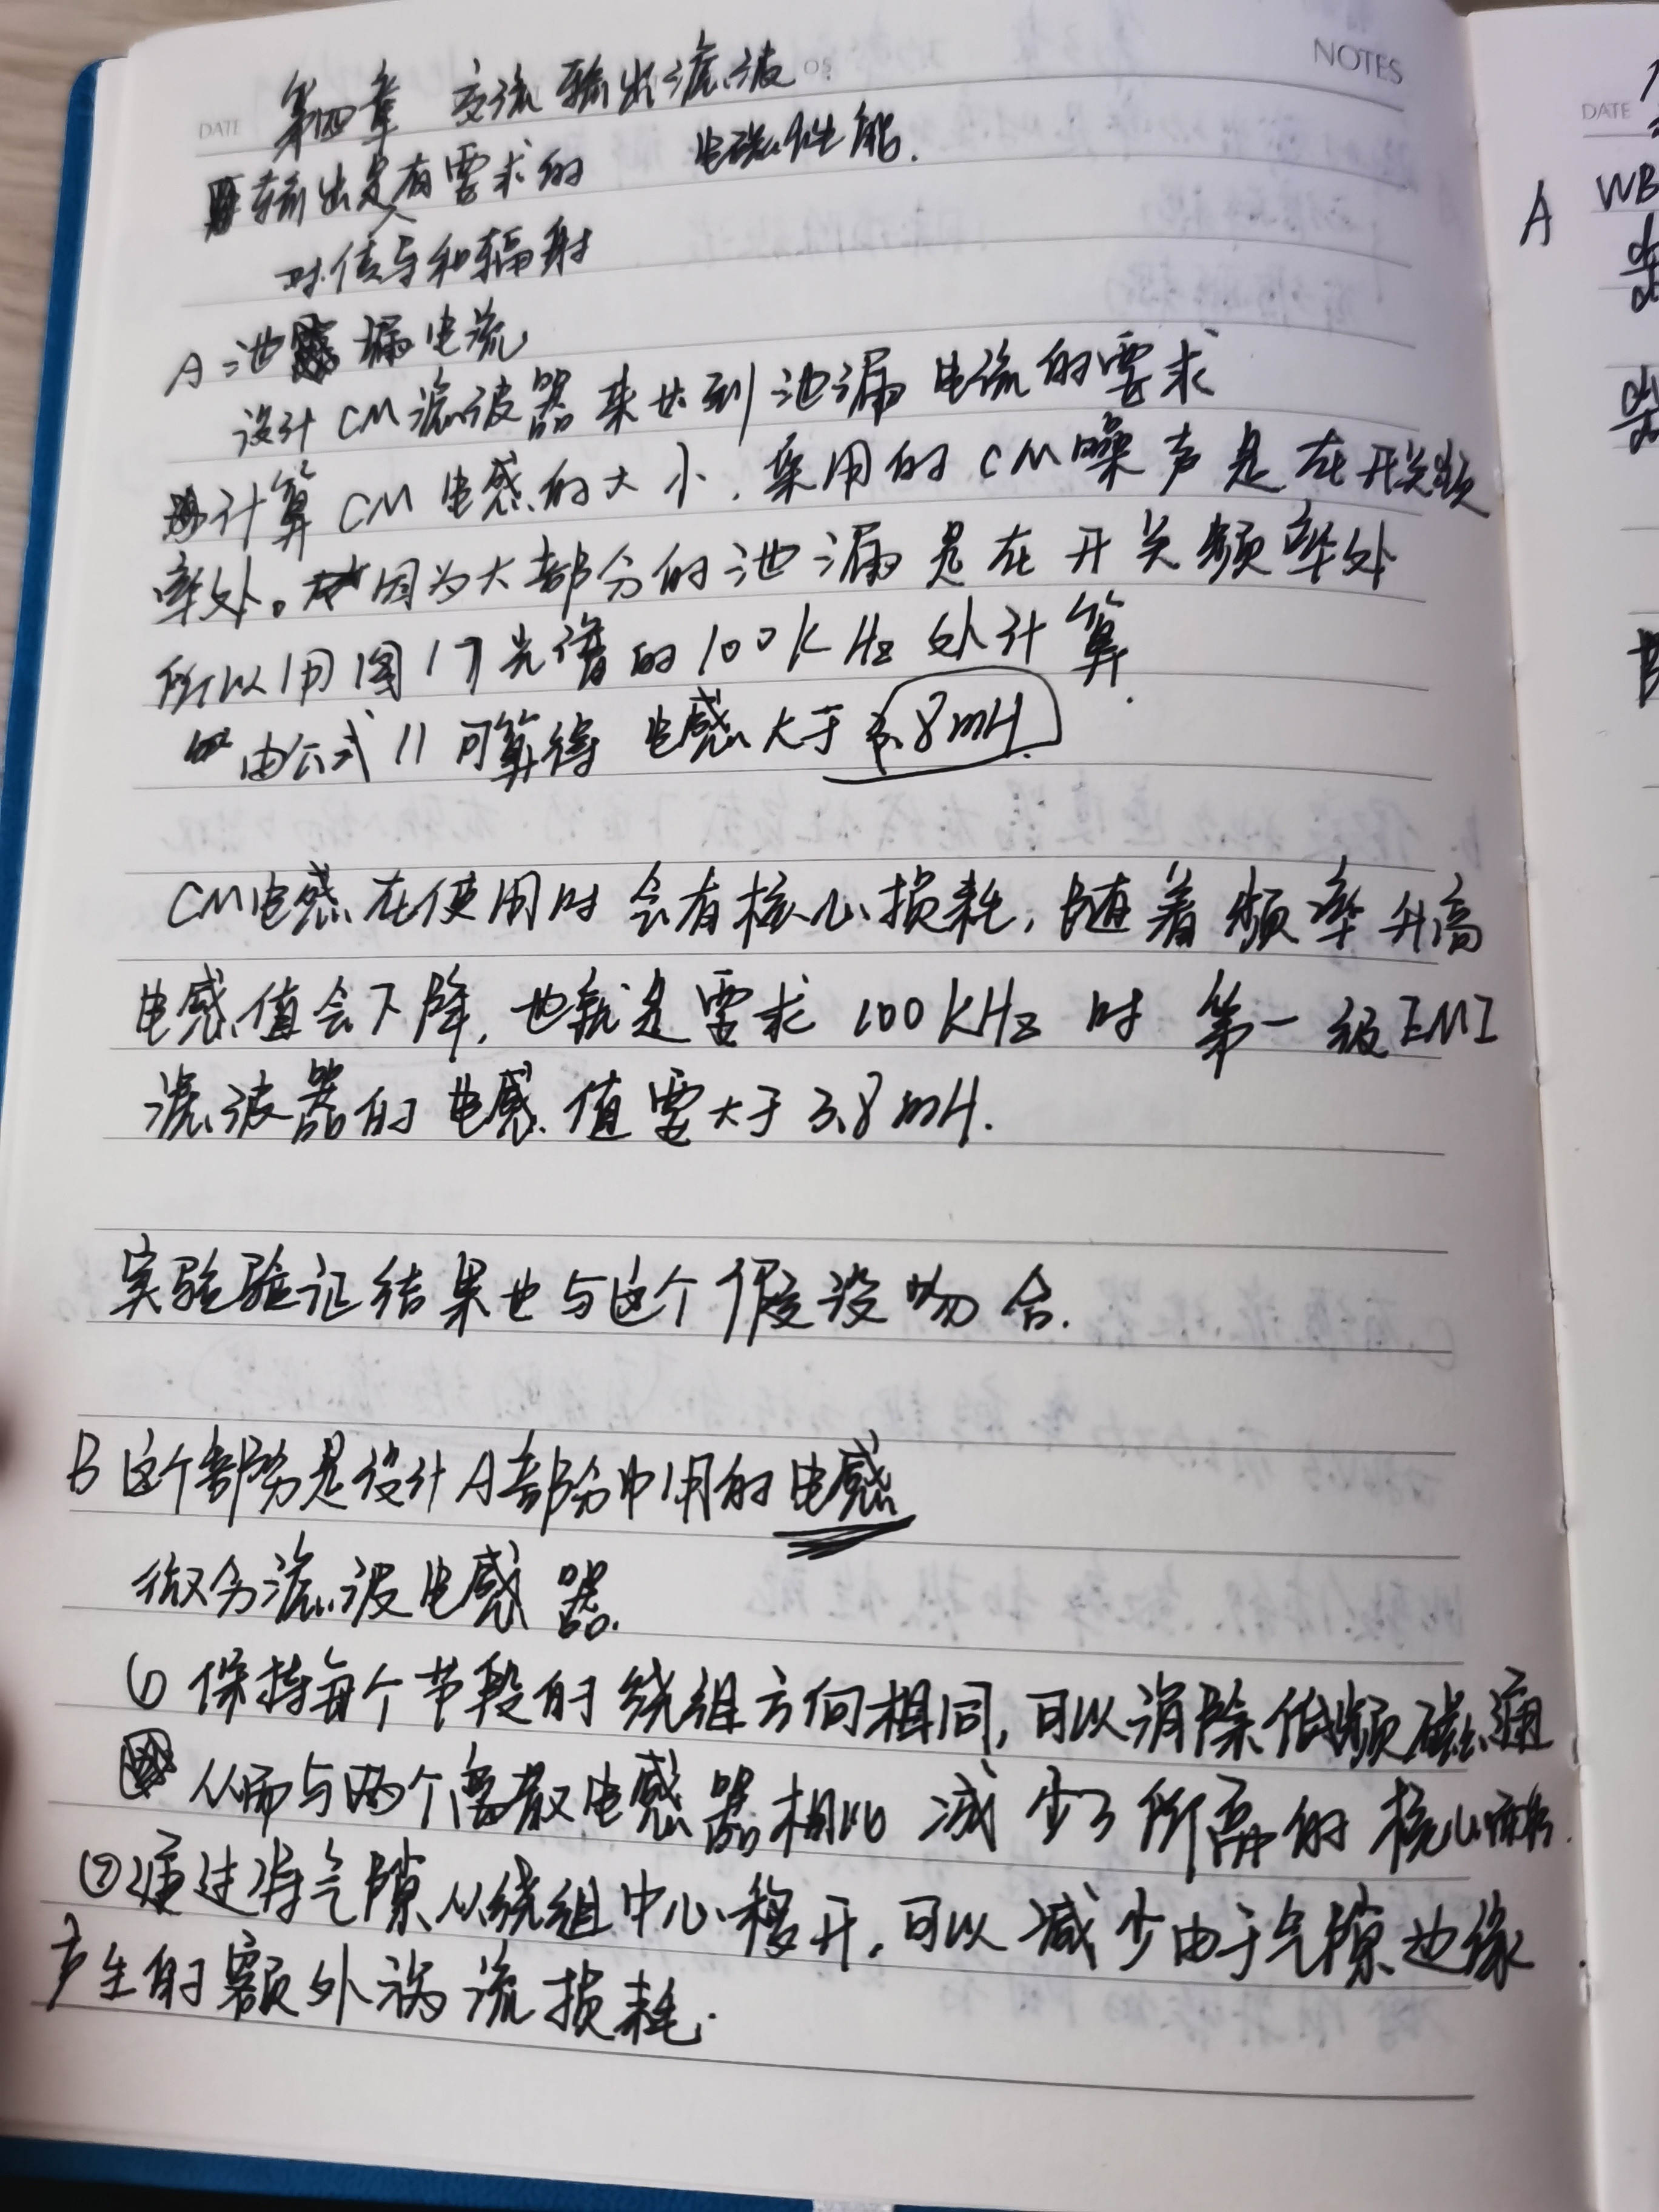 DATE
NOTES
第四章 交流输出滤波
输出是有要求的 电磁性能.
对传导和辐射
A 池漏电流
设计CM滤波器来达到池漏电流的要求
计算CM电感的大小,采用的CM噪声是在开关频
率处。因为大部分的池漏是在开关频率处
所以用图17光谱的100KHz处计算.
由公式11可算得 电感大于3.8mH.
CM电感在使用时会有核心损耗,随着频率升高
电感值会下降,也就是要求100KHz时 第一级EMI
滤波器的电感值要大于3.8mH.
实验验证结果也与这个假设吻合.
B 这个部分是设计A部分中用的电感
微分滤波电感器.
① 保持每个节段的绕组方向相同,可以消除低频磁通
从而与两个离散电感器相比 减少了所需的核心面积.
②通过将气隙从绕组中心移开,可以减少由于气隙边缘
产生的额外涡流损耗.
DATE
A WB